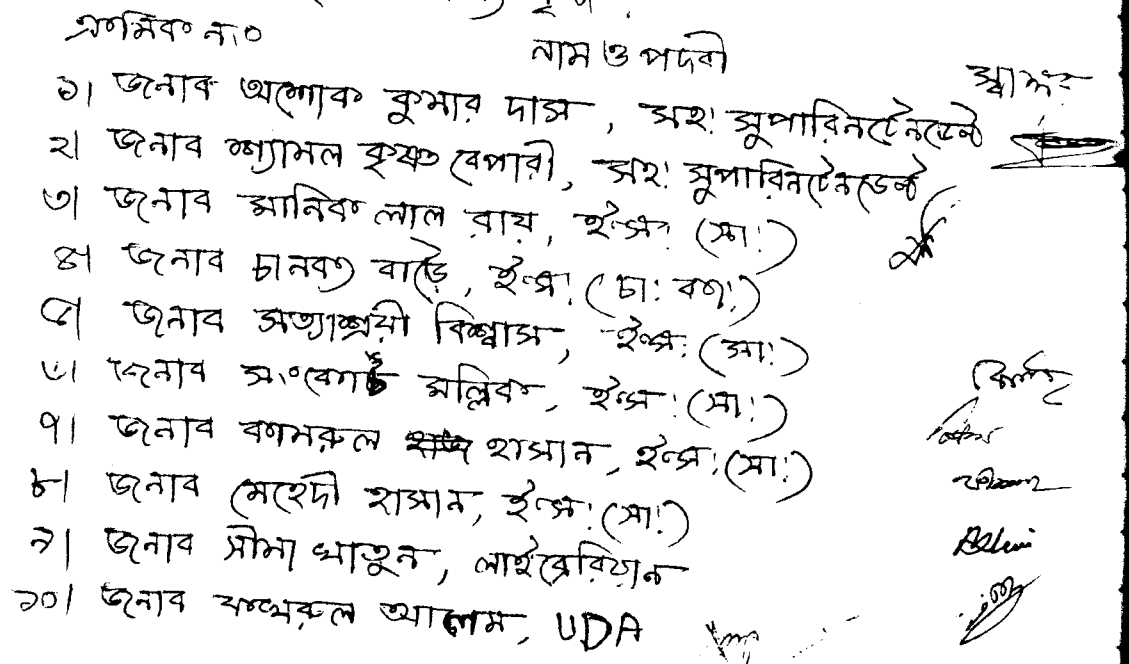 ক্রমিক নং
নাম ও পদবী
স্বাক্ষর
১। জনাব অশোক কুমার দাস, সহ: সুপারিনটেনডেন্ট
২। জনাব শ্যামল কৃষ্ণ বেপারী, সহ: সুপারিনটেনডেন্ট
৩। জনাব মানিক লাল রায়, ইন্স: (সা:)
৪। জনাব চানক্য বাড়ৈ, ইন্স: (চা: কা:)
৫। জনাব সত্যাশ্রয়ী বিশ্বাস, ইন্স: (সা:)
৬। জনাব মল্লিক, ইন্স: (সা:)
৭। জনাব কামরুল হাসান, ইন্স: (সা:)
৮। জনাব মেহেদী হাসান, ইন্স: (সা:)
৯। জনাব সীমা খাতুন, লাইব্রেরিয়ান
১০। জনাব ফখরুল আলম, UDA